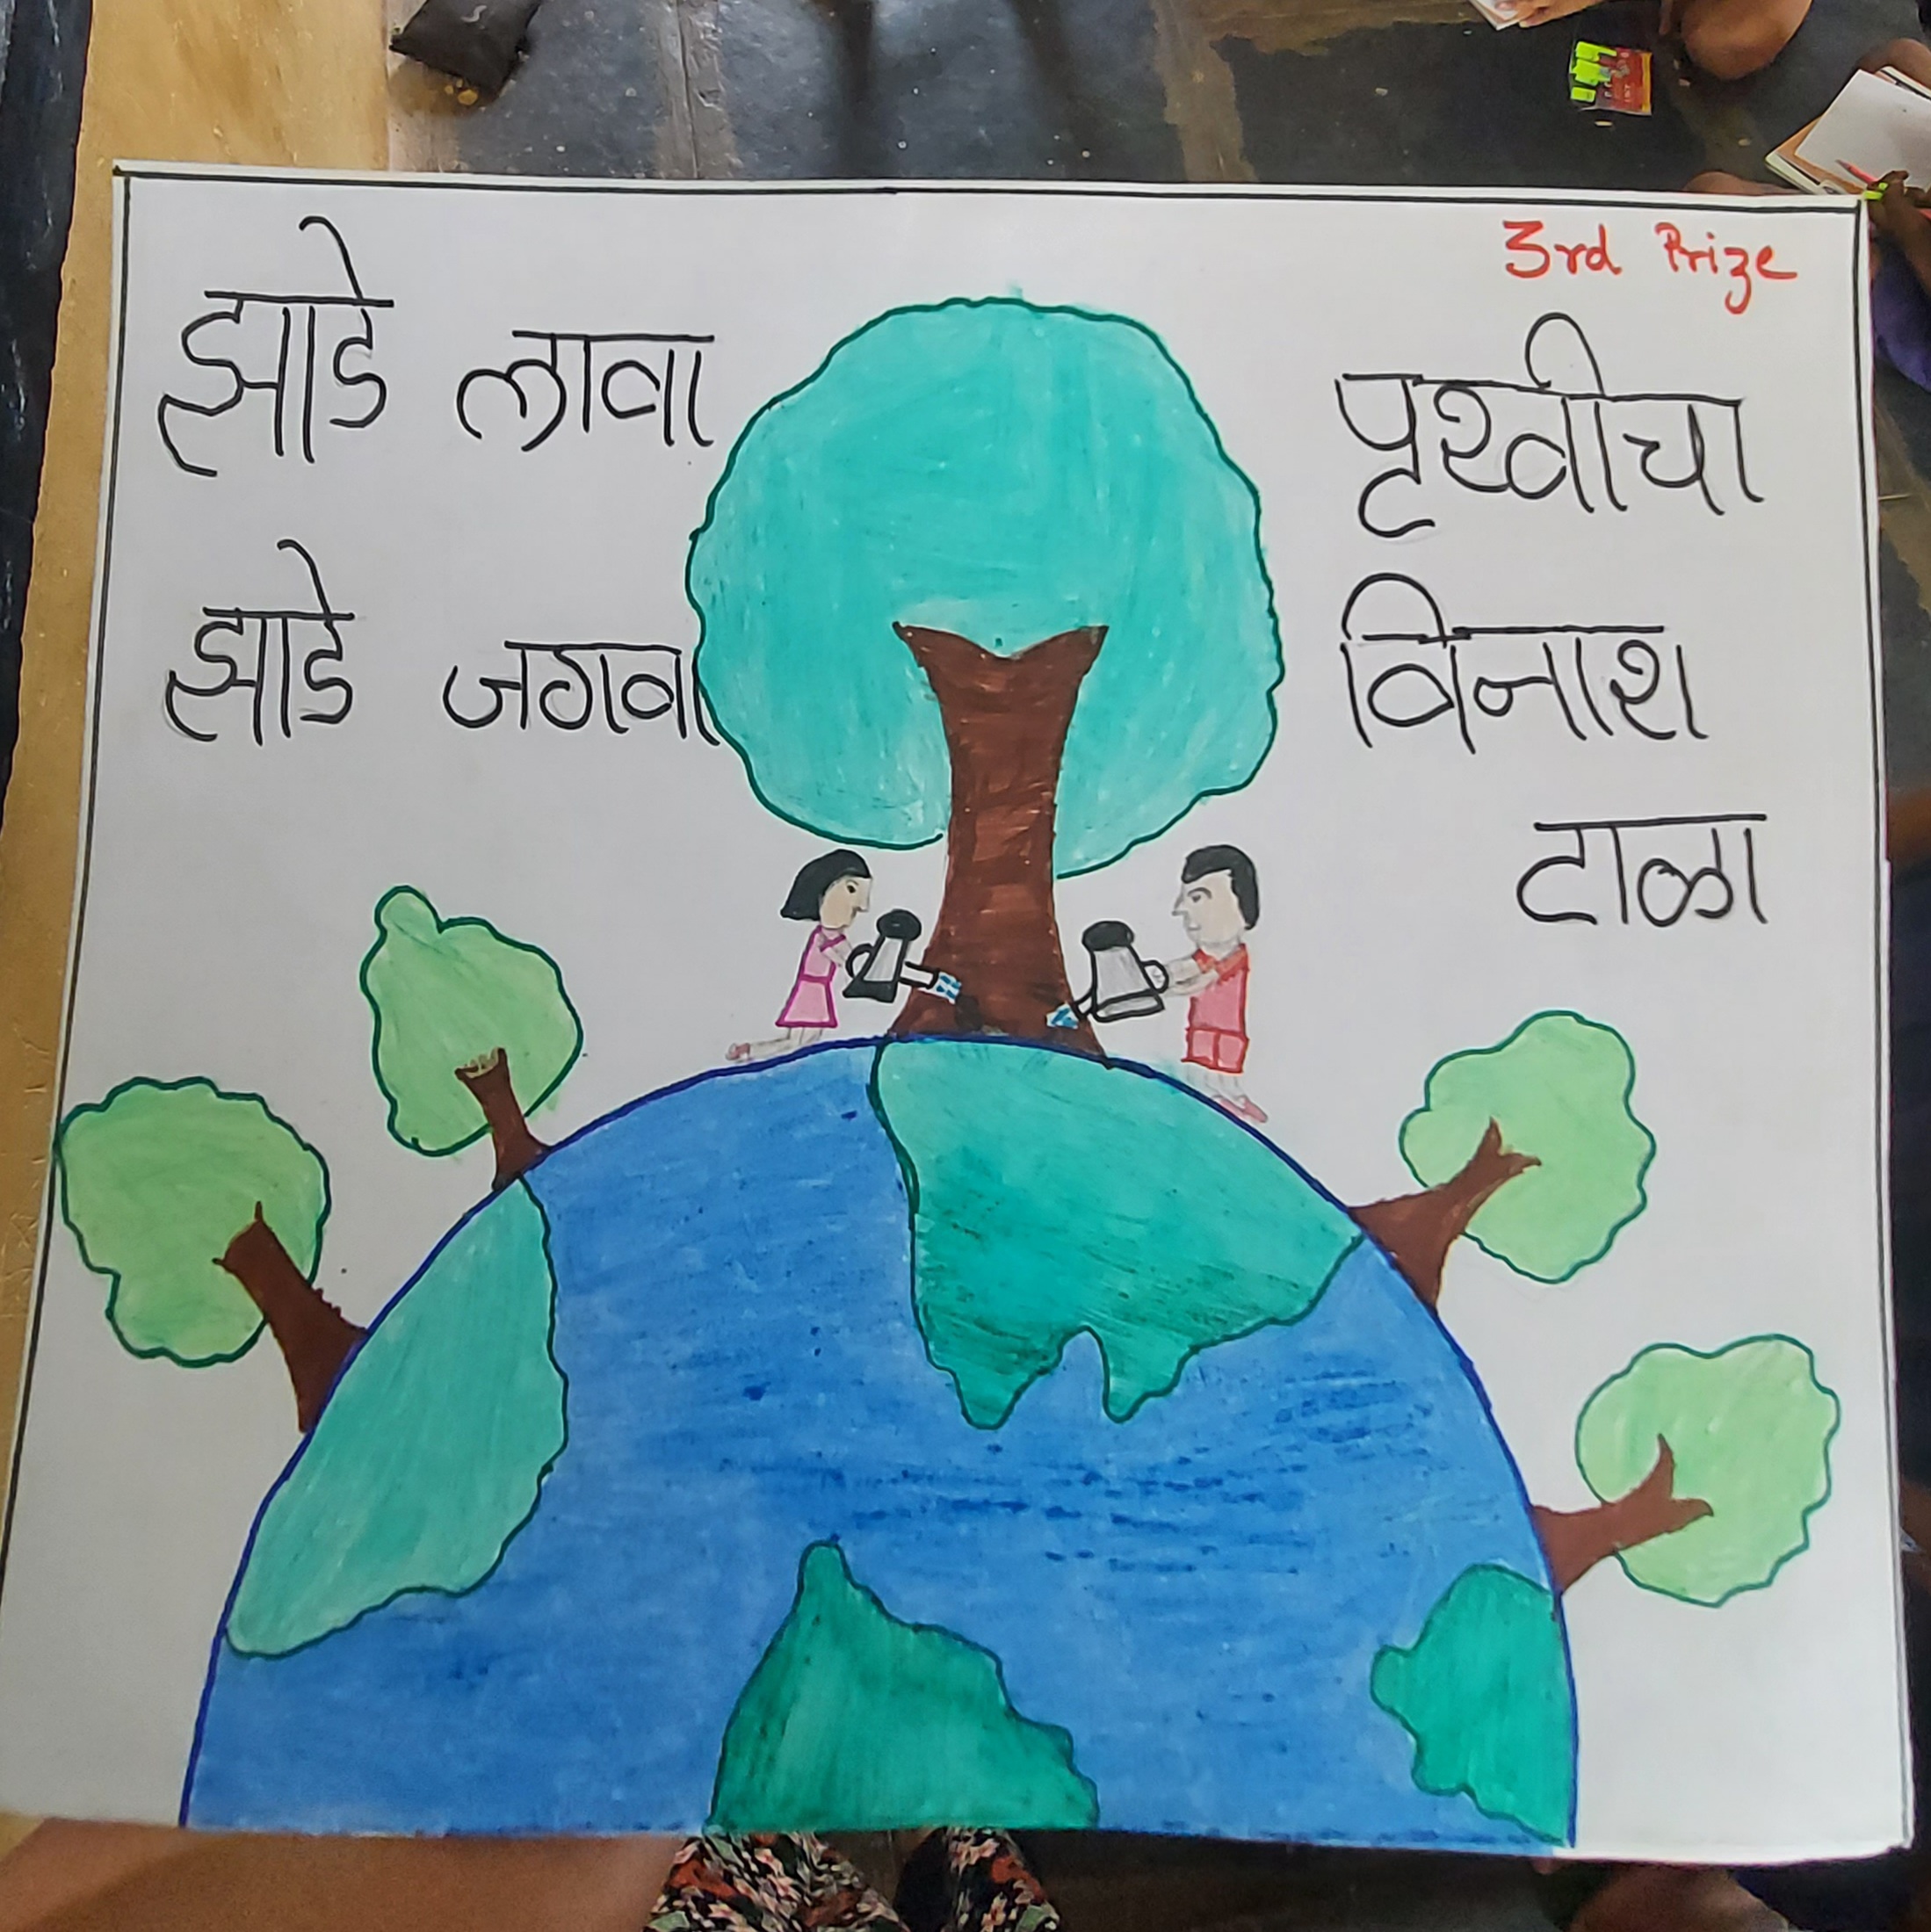 3rd Prize
झाडे लावा
झाडे जगवा
पृथ्वीचा
विनाश
टाळा